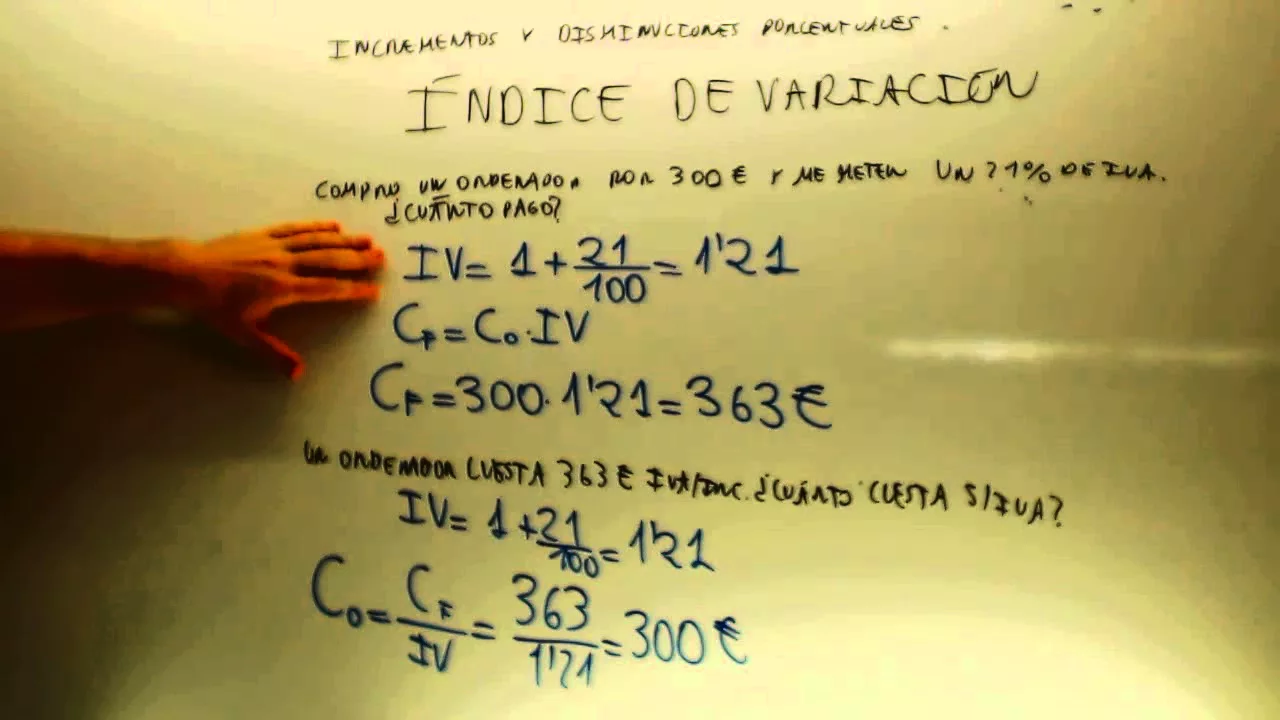 INCREMENTOS Y DISMINUCIONES PORCENTUALES.
ÍNDICE DE VARIACIÓN
COMPRO UN ORDENADOR POR 300 € Y ME METEN UN 21% DE IVA.
¿CUÁNTO PAGO?
IV = 1 + 21/100 = 1'21
CF = C0 · IV
CF = 300 · 1'21 = 363 €
UN ORDENADOR CUESTA 363 € IVA/INC. ¿CUÁNTO CUESTA S/IVA?
IV = 1 + 21/100 = 1'21
C0 = CF/IV = 363/1'21 = 300 €